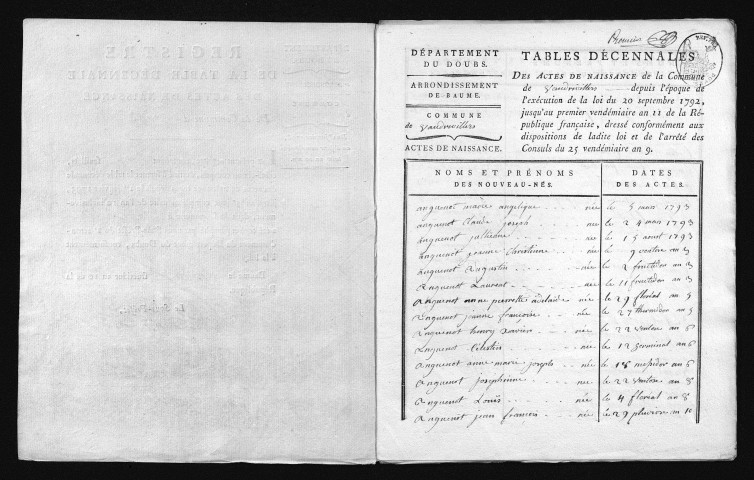 DÉPARTEMENT
DU DOUBS.
ARRONDISSEMENT
DE BAUME.
COMMUNE
de Vaudrivillers
ACTES DE NAISSANCE.
TABLES DÉCENNALES
DES ACTES DE NAISSANCE de la Commune
de Vaudrivillers depuis l'époque de
l'exécution de la loi du 20 septembre 1792,
jusqu'au premier vendémiaire an 11 de la Ré-
publique française, dressé conformément aux
dispositions de ladite loi et de l'arrêté des
Consuls du 25 vendémiaire an 9.
NOMS ET PRÉNOMS
DES NOUVEAU-NÉS.
DATES
DES ACTES.
anguenot marie angelique née le 5 mars 1793
anguenot Claude joseph née le 24 mars 1793
anguenot jullienne née le 15 aout 1793
anguenot jeanne Chretienne née le 9 ventose an 3
anguenot augustin née le 2 fructidor an 3
anguenot Laurent née le 11 fructidor an 3
anguenot anne pierrette adelaide née le 29 floréal an 5
anguenot jeanne francoise née le 27 thermidor an 5
anguenot henry xavier née le 22 ventose an 6
anguenot Celestin née le 12 germinal an 6
anguenot anne marie joseph née le 18 messidor an 6
anguenot josephinne née le 22 ventose an 8
anguenot Louis née le 4 floréal an 8
anguenot jean francois née le 29 pluviose an 10